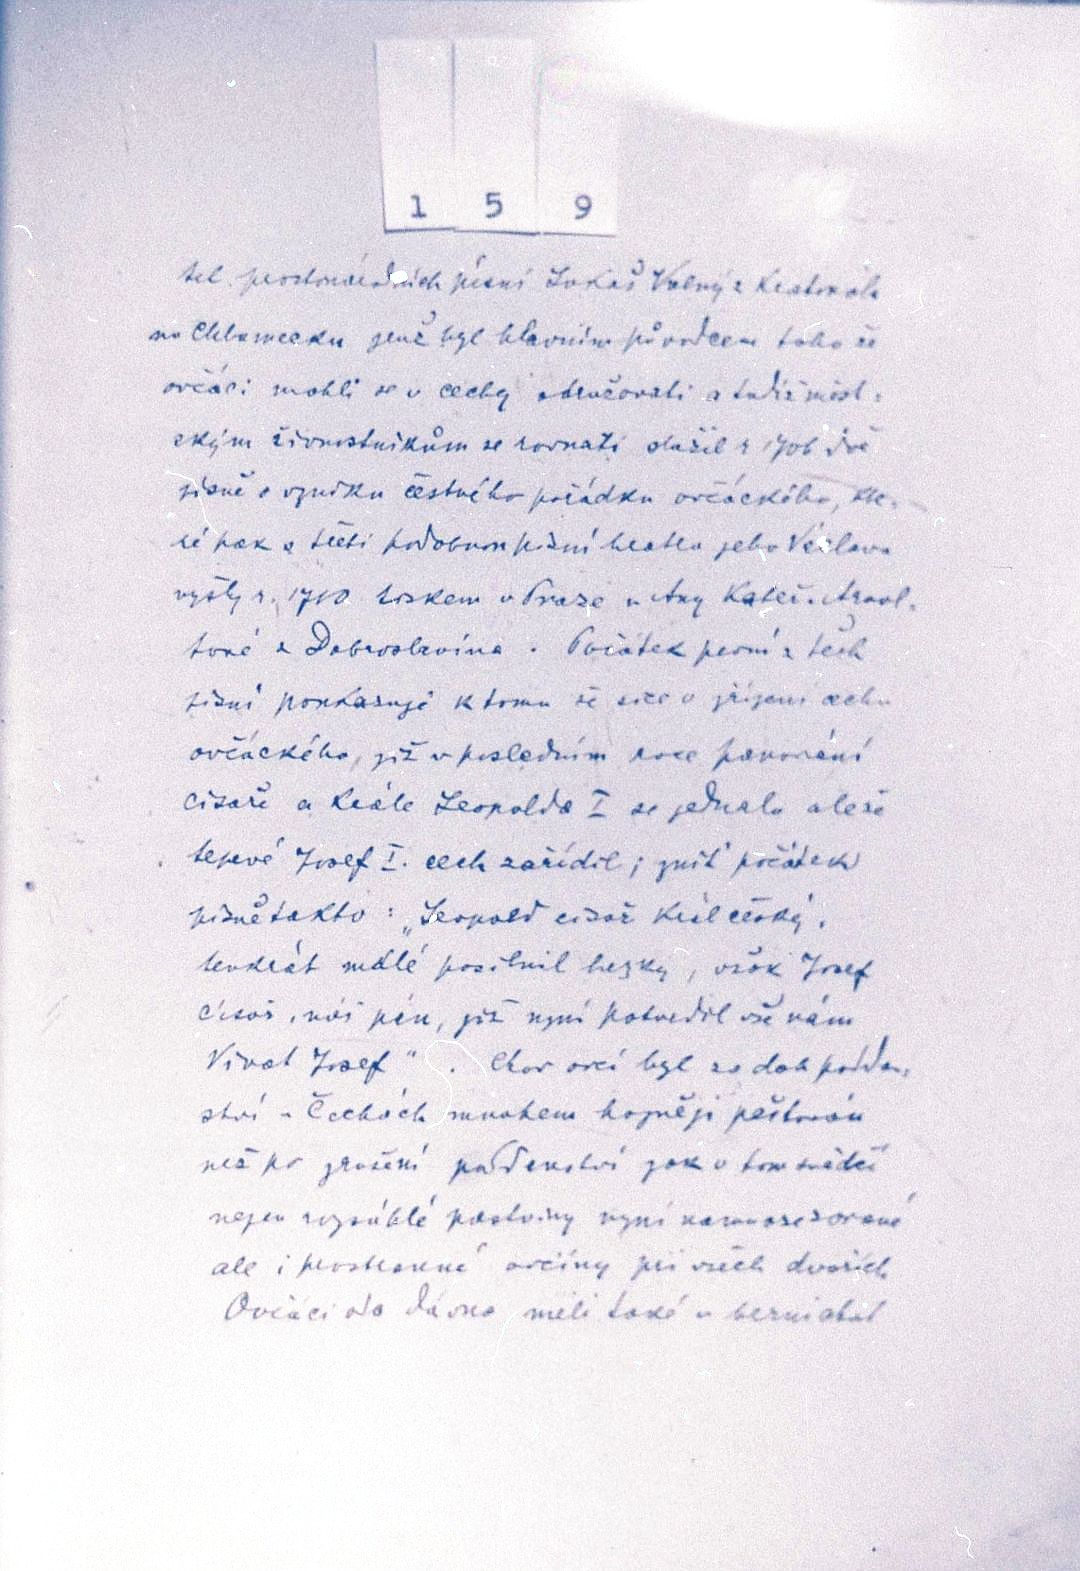 1 5 9
tel prostonárodních písní Lukáš Volný z Kratonoh
na Chlumecku jenž byl hlavním původcem toho že
ovčáci mohli se v cechy sdružovati a tudíž měst-
ským živnostníkům se rovnati složil r 1706 dvě
písně o vzniku čestného pořádku ovčáckého, kte-
ré pak s třetí podobnou písní bratra jeho Václava
vyšly r. 1710 tiskem v Praze u Any Kateř.
tové z Dobroslavína. Počátek první z těch
písní poukazuje k tomu že sice o přijení cechu
ovčáckého, již v posledním roce panování
císaře a krále Leopolda I se jednalo avšak
teprvé Josef I. cech zařídil; zníť počátek
písně takto: „Leopold císař král český,
tenkrát málé posilnil hezky, však Josef
císař, náš pán, již nyní potvrdil vše nám
Vivat Josef". Chov ovcí byl za dob poddan-
ství v Čechách mnohem hojněji pěstován
než po zrušení poddanství jak o tom svědčí
nejen rozsáhlé pastviny nyní namnoze zorané
ale i prostranné ovčíny při všech dvořích
Ovčáci oda dávna měli také v berni